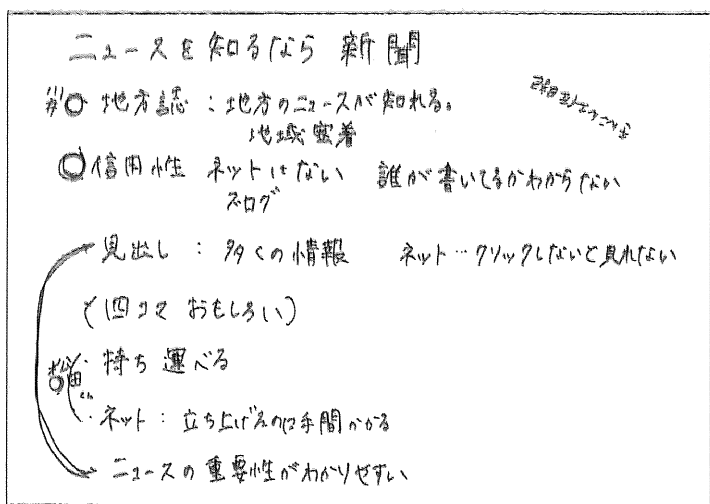 ニュースを知るなら 新聞
地方誌：地方のニュースが知れる。
地域密着
信用性 ネットはない 誰が書いてるかわからない
ブログ
見出し：多くの情報 ネット…クリックしないと見れない
(四コマ おもしろい)
持ち運べる
ネット：立ち上げるのに手間かかる
ニュースの重要性がわかりやすい